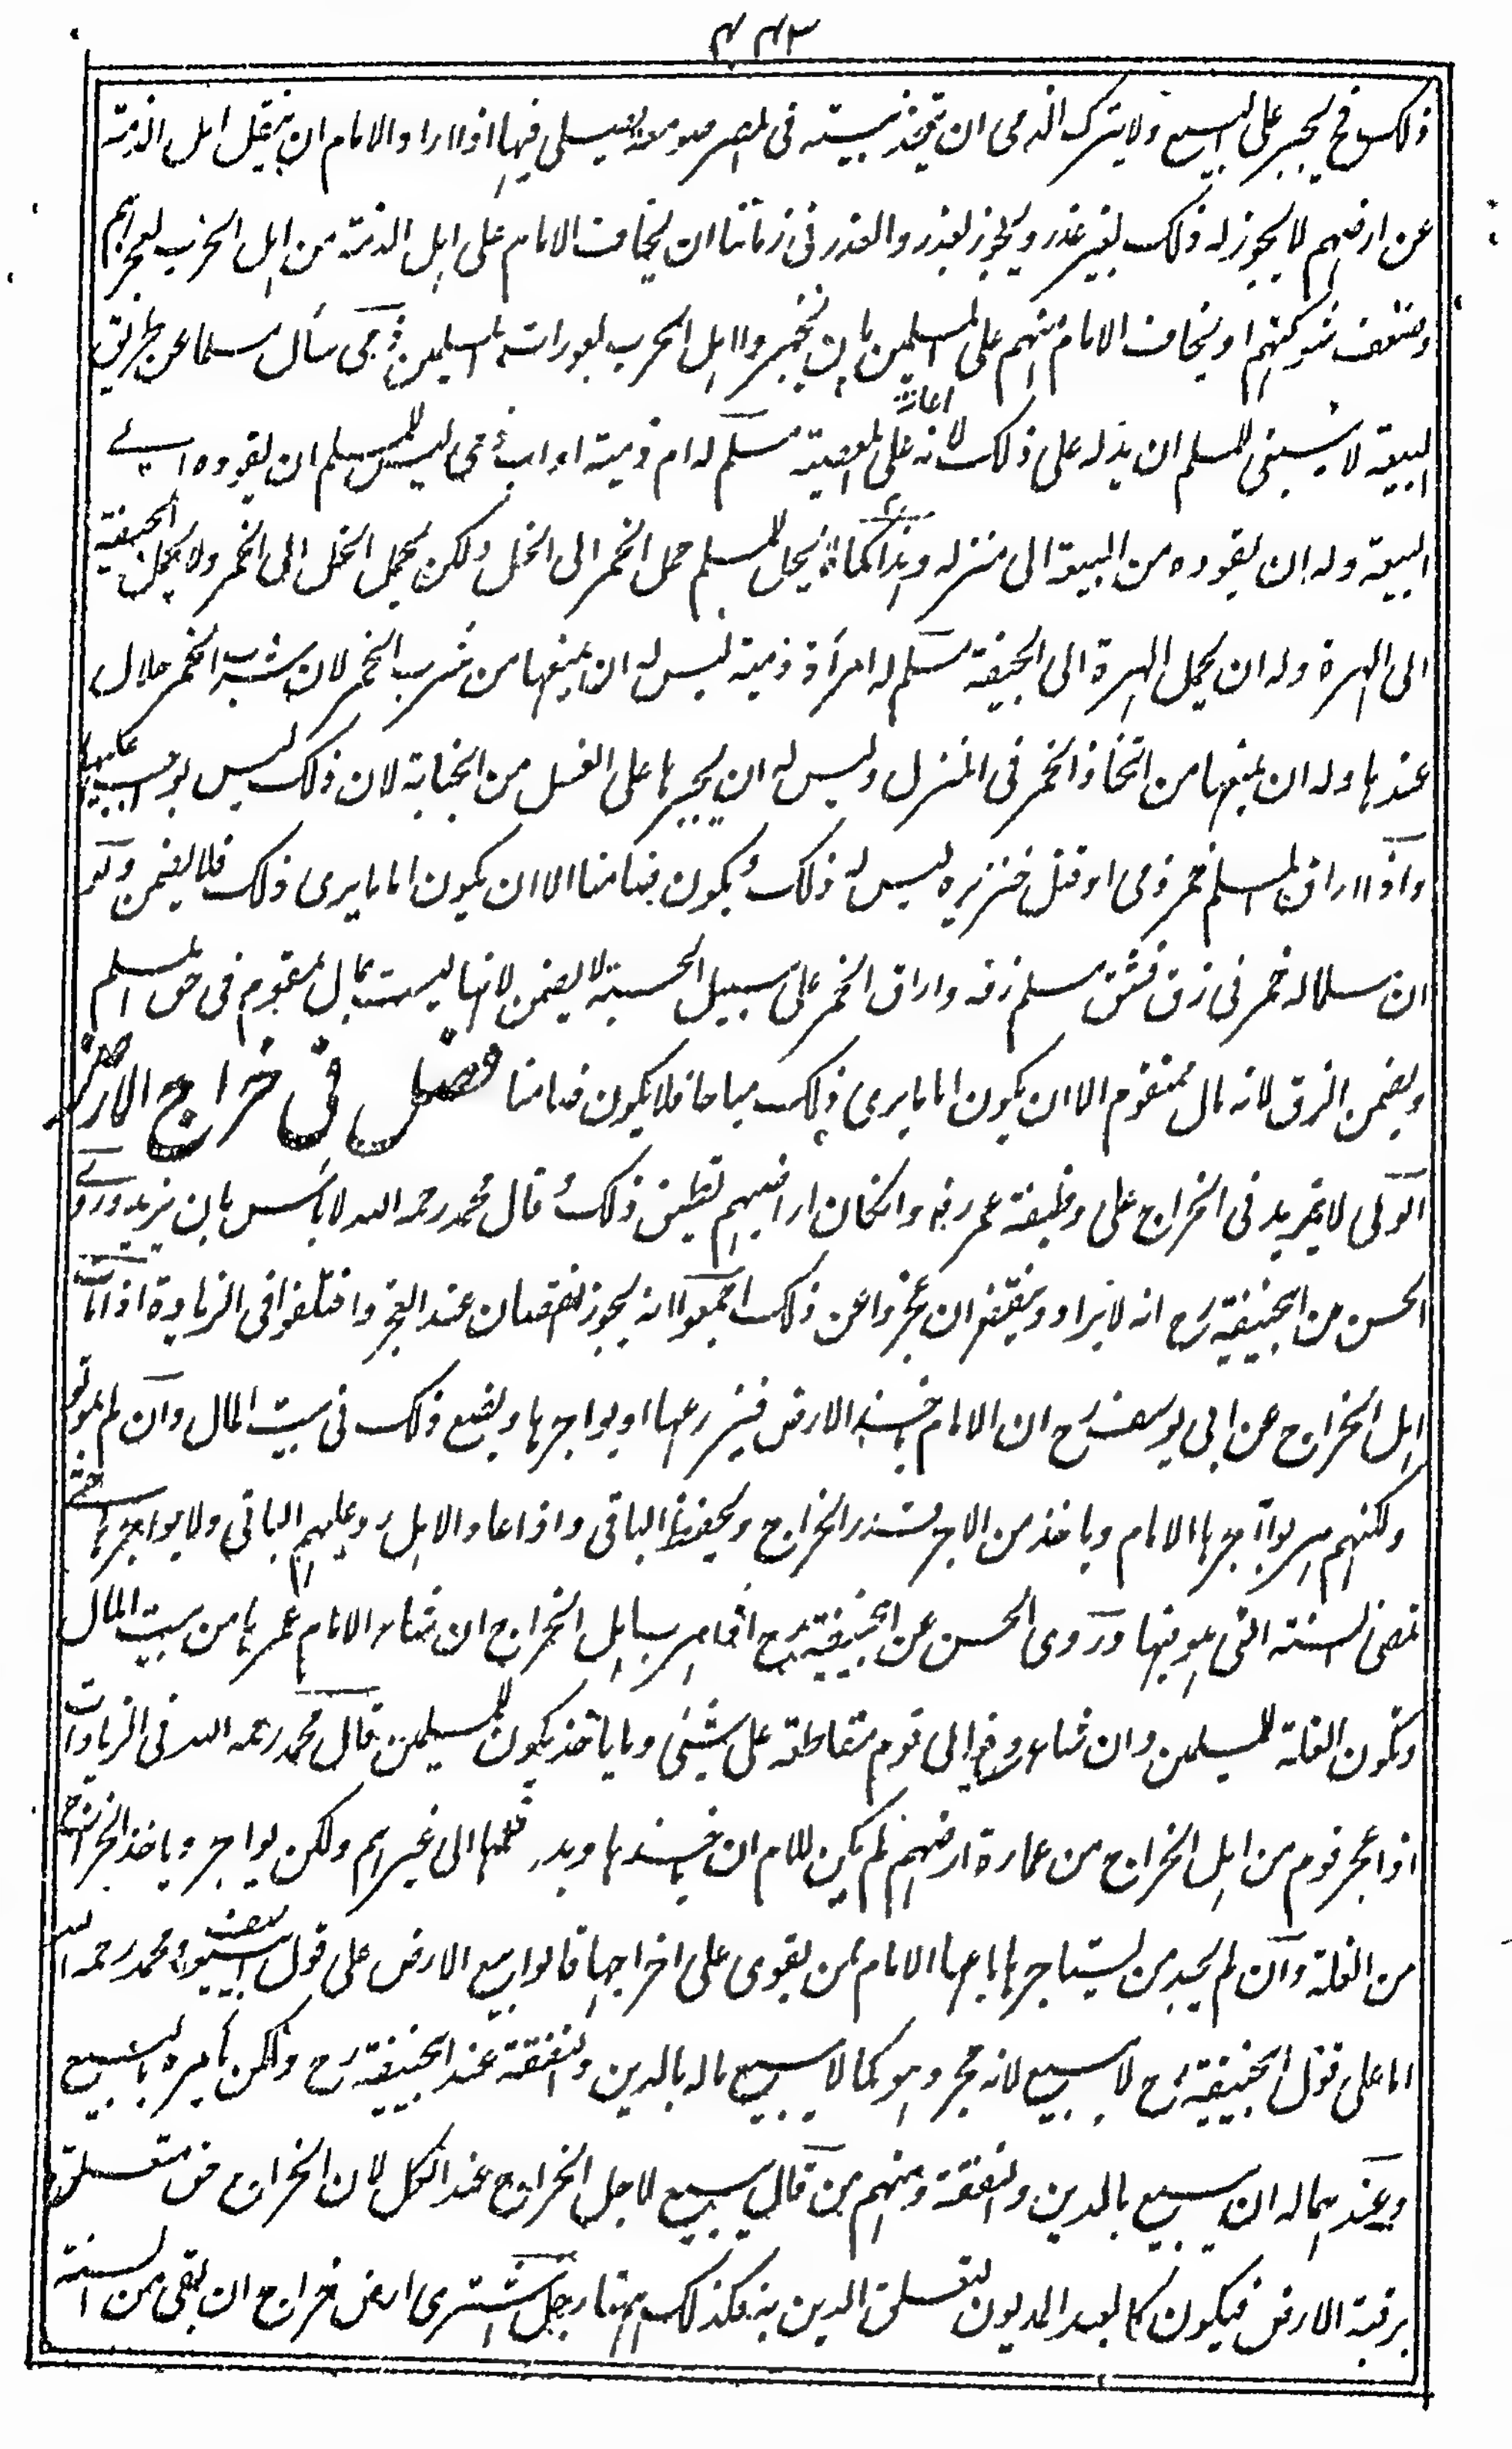 ٤٤٣
ذلك فح يجبر على البيع ولا يترك الذمى ان يتخذ بيته فى المصر صومعة يصلى فيها اذا اراد الامام ان ينقل اهل الذمة
عن ارضهم لا يجوز له ذلك بغير عذر ويجوز بعذر والعذر فى زماننا ان يخاف الامام على اهل الذمة من اهل الحرب لعجزهم
وضعف شوكتهم او يخاف الامام منهم على المسلمين بان يخبروا اهل الحرب بعورات المسلمين ذمى سأل مسلما عن طريق
البيعة لا ينبغى للمسلم ان يدله على ذلك لانه اعانة على المعصية مسلم له ام ذمية او اب ذمى ليس للمسلم ان يقوده الے
البيعة وله ان يقوده من البيعة الى منزله وهذا كما لا يحل للمسلم حمل الخمر الى الخل ولكن يحمل الخل الى الخمر ولا يحمل الجيفة
الى الهرة وله ان يحمل الهرة الى الجيفة مسلم له امرأة ذمية ليس له ان يمنعها من شرب الخمر لان شرب الخمر حلال
عندها وله ان يمنعها من اتخاذ الخمر فى المنزل وليس له ان يجبرها على الغسل من الجنابة لان ذلك ليس بواجب عليها
واذا اراق المسلم خمر ذمى او قتل خنزيره ليس له ذلك ويكون ضامنا الا ان يكون اماما يرى ذلك فلا يضمن ولو
ان مسلما له خمر فى زق فشق مسلم زقه واراق الخمر على سبيل الحسبة لا يضمن لانها ليست بمال متقوم فى حق المسلم
ويضمن الزق لانه مال متقوم الا ان يكون اماما يرى ذلك مباحا فلا يكون ضامنا فصل فى خراج الارض
الوالى لا يزيد فى الخراج على وظيفة عمر رضه وان كان اراضيهم تطيق ذلك و قال محمد رحمه الله لا بأس بان يزيد وروے
الحسن عن ابيحنيفة رح انه لا يزاد وينقص ان عجزوا عن ذلك اجمعوا انه يجوز النقصان عند العجز واختلفوا فى الزيادة اذا مات
اهل الخراج عن ابى يوسف رح ان الامام يأخذ الارض فيزرعها او يواجرها ويضع ذلك فى بيت المال وان لم يموتوا
ولكنهم هربوا آجرها الامام وياخذ من الاجر قدر الخراج ويحفظ الباقى واذا عاد الاهل رد عليهم الباقى ولا يواجرها حتے
تمضى السنة التى هربوا فيها وروى الحسن عن ابيحنيفة رح اذا هرب اهل الخراج ان شاء الامام عمرها من بيت المال
وتكون الغلة للمسلمين وان شاء دفع الى قوم مقاطعة على شيئ وما ياخذ يكون للمسلمين قال محمد رحمه الله فى الزيادات
اذا عجز قوم من اهل الخراج من عمارة ارضهم لم يكن للامام ان يأخذها ويدفعها الى غيرهم ولكن يواجر وياخذ الخراج
من الغلة وان لم يجد من يستاجرها باعها الامام ممن يقوى على اخراجها قالوا بيع الارض على قول ابيوسف ومحمد رحمه الله
اما على قول ابيحنيفة رح لا يبيع لانه حجر وهو كما لا يبيع ماله بالدين والنفقة عند ابيحنيفة رح ولكن يأمره بالبيع
وعندهما له ان يبيع بالدين والنفقة ومنهم من قال يبيع لاجل الخراج عند الكل لان الخراج حق متعلق
برقبة الارض فيكون كالعبد المديون لتعلق الدين به فكذلك ههنا رجل اشترى ارض خراج ان بقى من السنة